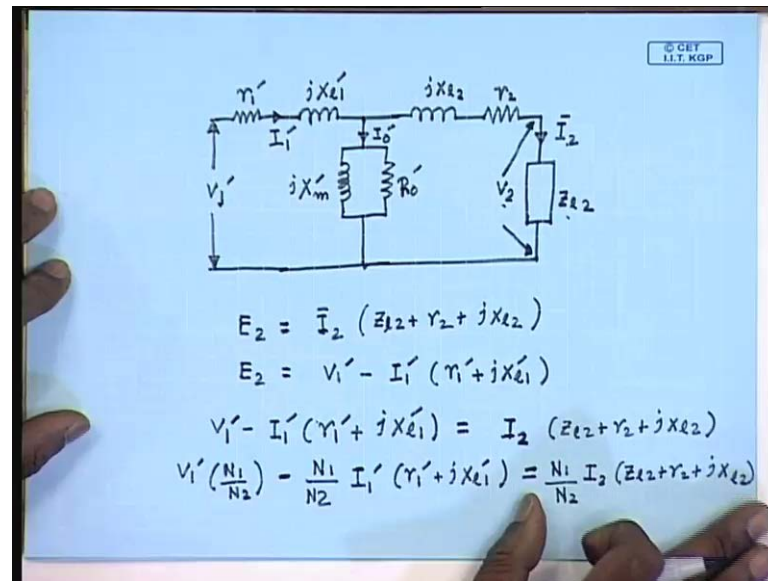 © CET
I.I.T. KGP
r₁′ jxℓ₁′ jxℓ₂ r₂
I₁′ I₀′ Ī₂
V₁′ jX′m R₀′ V₂ Zℓ₂
E₂ = Ī₂ (Zℓ₂ + r₂ + jxℓ₂)
E₂ = V₁′ - I₁′ (r₁′ + jxℓ₁′)
V₁′ - I₁′ (r₁′ + jxℓ₁′) = I₂ (Zℓ₂ + r₂ + jxℓ₂)
V₁′ (N₁/N₂) - N₁/N2 I₁′ (r₁′ + jxℓ₁′) = N₁/N₂ I₂ (Zℓ₂ + r₂ + jxℓ₂)